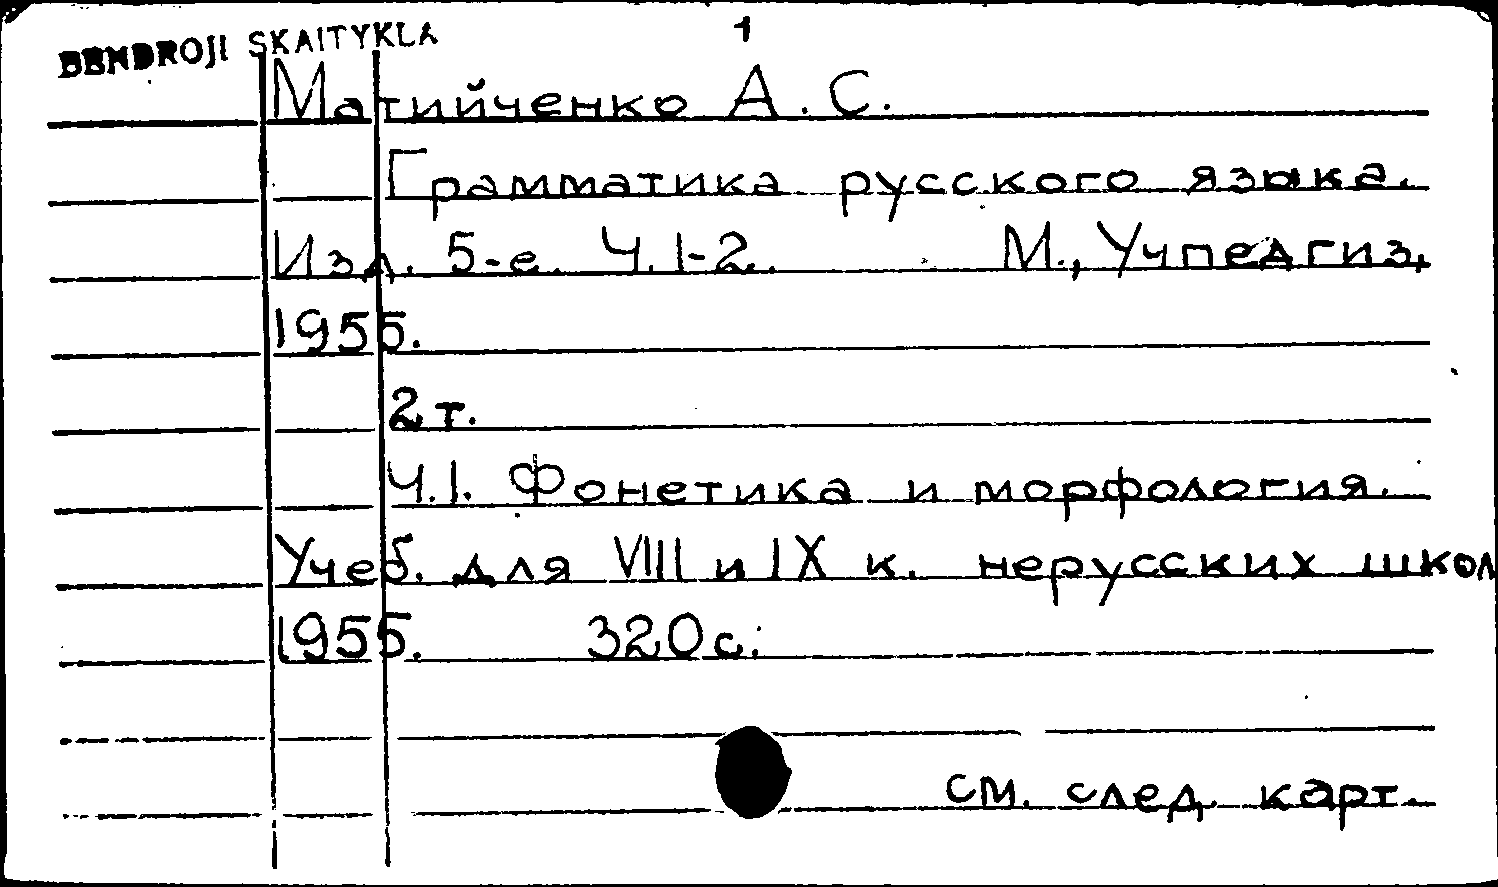 BENDROJI SKAITYKLA
1
Матийченко А. С.
Грамматика русского языка.
Изд. 5-е. Ч. 1-2. М., Учпедгиз,
1955.
2 т.
Ч. 1. Фонетика и морфология.
Учеб. для VIII и IX к. нерусских школ
1955. 320 с.
см. след. карт.